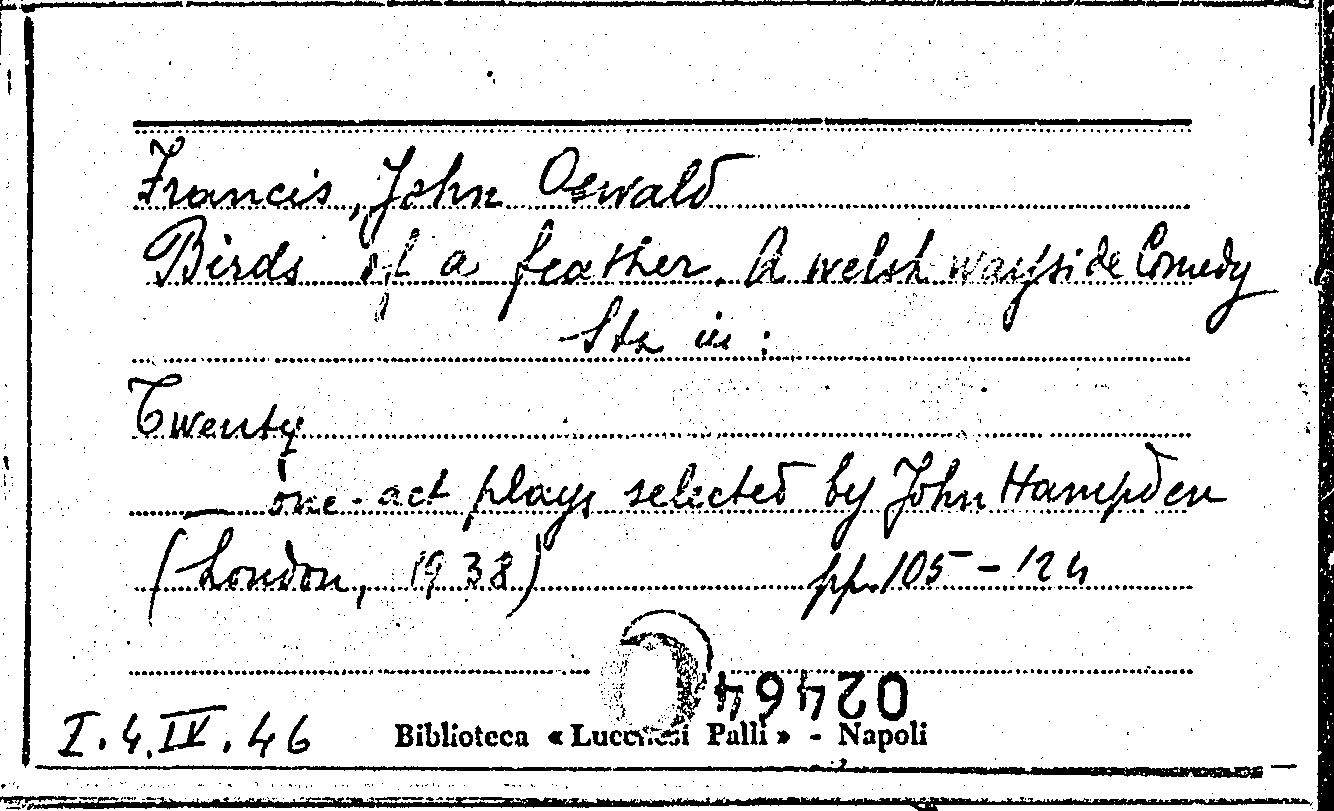 Francis, John Oswald
Birds of a feather. A welsh wayside Comedy
Sta in :
Twenty
one-act plays selected by John Hampden
(London, 1938) pp. 105-124
02464
I.4.IV.46 Biblioteca « Lucchesi Palli » - Napoli